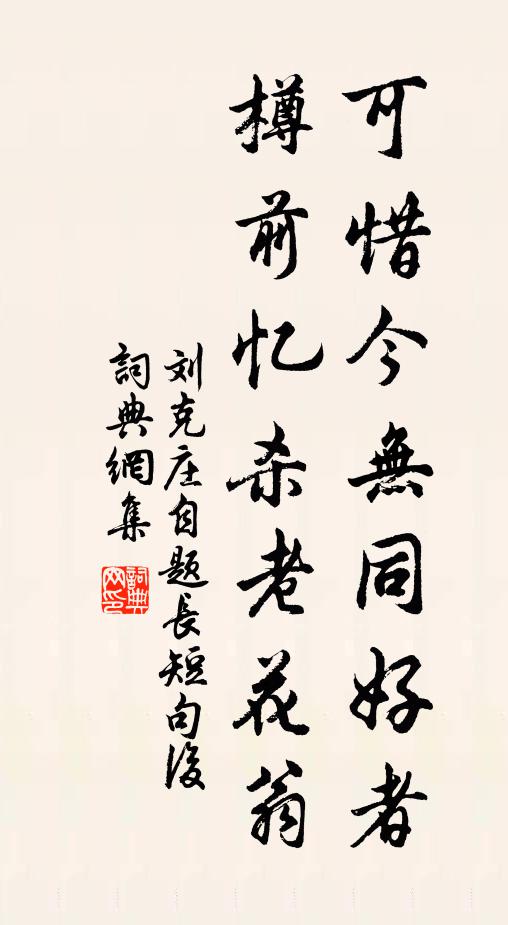 可惜今無同好者
樽前忆杀老花翁
刘克庄自题長短句後
詞典網集
詞典網印